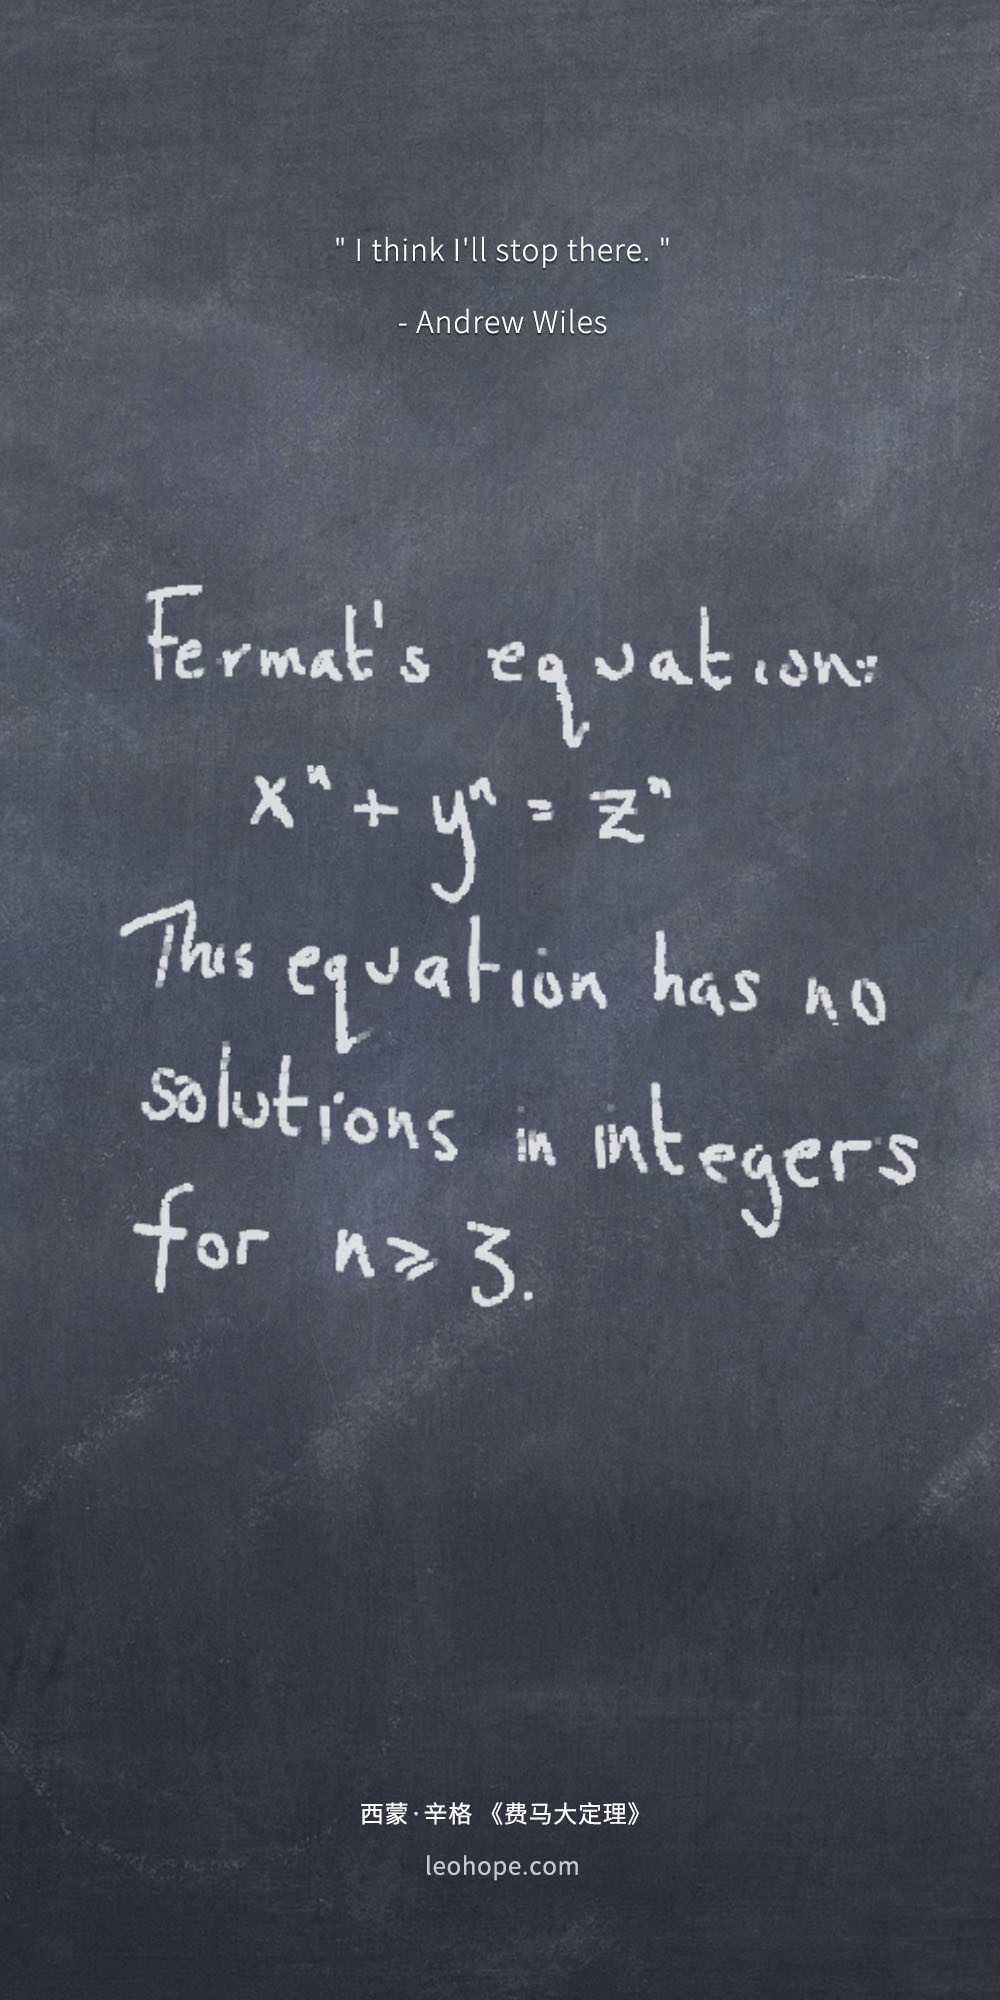 " I think I'll stop there. "
- Andrew Wiles
Fermat's equation:
xⁿ + yⁿ = zⁿ
This equation has no
solutions in integers
for n ⩾ 3.
西蒙·辛格 《费马大定理》
leohope.com